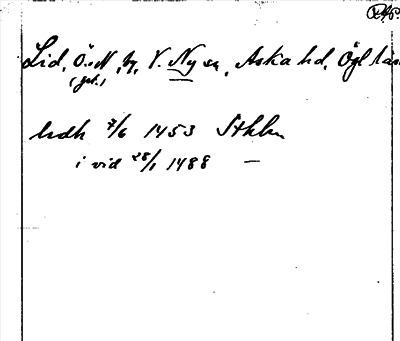 Lid, Ö. o. N., i V. Ny sn, Aska hd, Ögl län
(gd.)
hdh 7/6 1453 Sthlm
i vid 28/1 1488 —